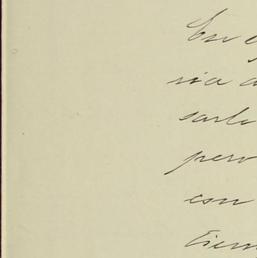 En e
ria a
sarlo
pero
con
tiem